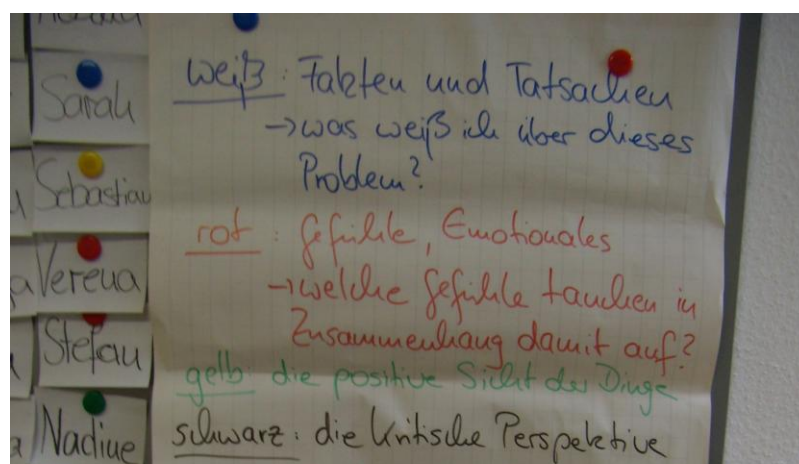 Sarah
Sebastian
Verena
Stefan
Nadine
weiß: Fakten und Tatsachen
→ was weiß ich über dieses
Problem?
rot: Gefühle, Emotionales
→ welche Gefühle tauchen in
Zusammenhang damit auf?
gelb: die positive Sicht der Dinge
schwarz: die kritische Perspektive